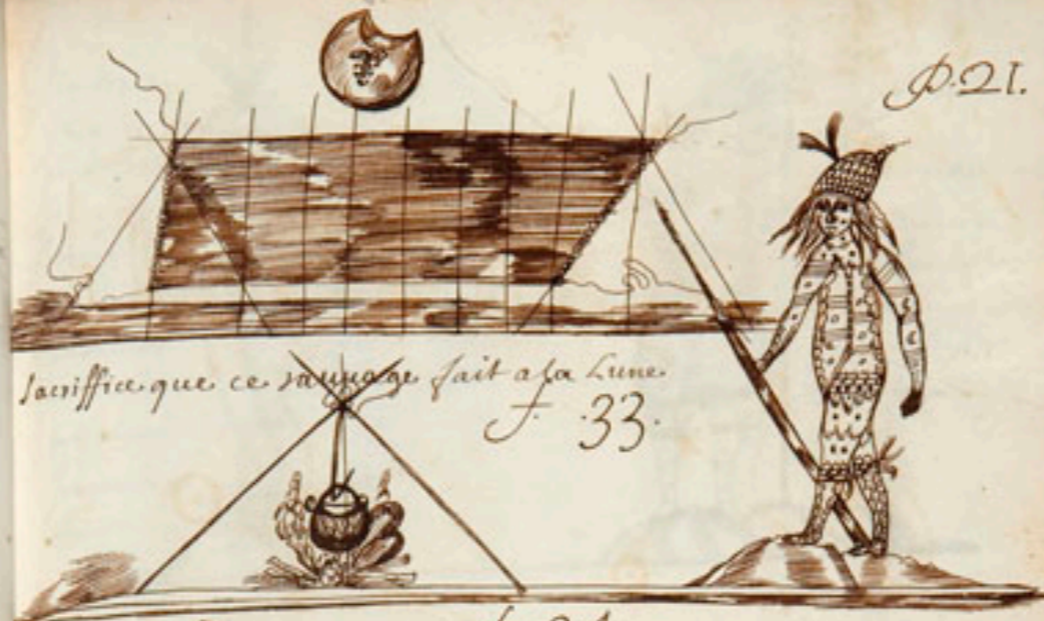 P. 21.
Sacriffice que ce sauuage fait a la Lune
f. 33.